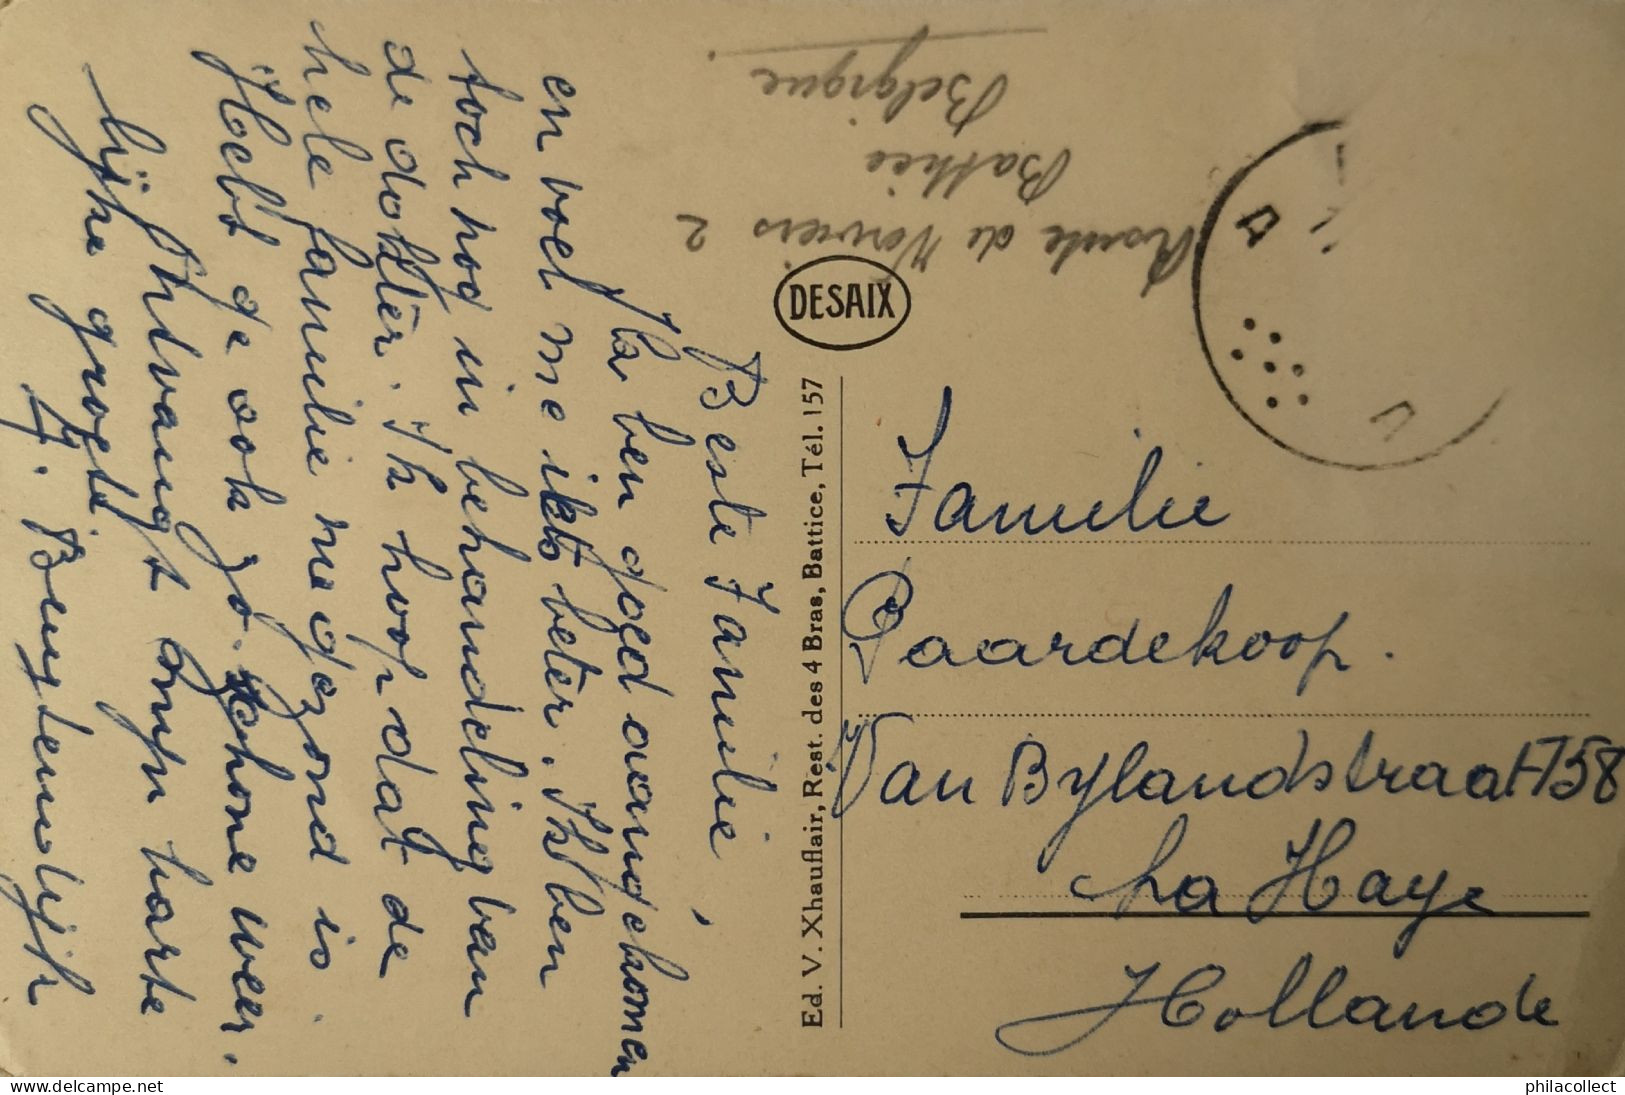 Beste Familie,
Ik ben goed aangekomen
en voel me iets beter. Ik ben
toch nog in behandeling van
de dokter. Ik hoop dat de
hele familie nog gezond is
Hoest ge ook zo. Schone weer.
Ontvangt mijn harte
lijke groete
A. Buytendijk
Route de Verviers 2
Battice
Belgique
DESAIX
Ed. V. Xhauflair, Rest. des 4 Bras, Battice, Tél. 157
Familie
Paardekoop.
Van Bylandstraat 158
La Haye
Hollande
delcampe.net
philacollect